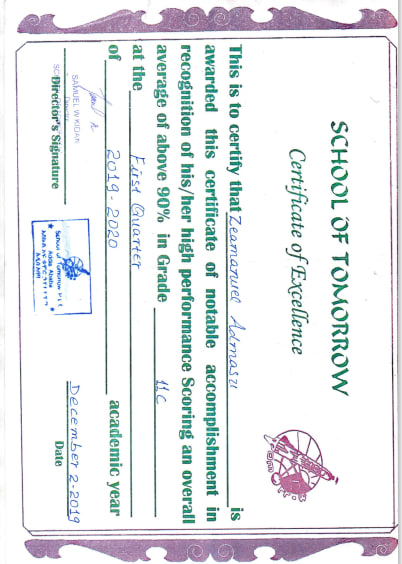 SCHOOL OF TOMORROW
Certificate of Excellence
This is to certify that Zeamanuel Admasu is
awarded this certificate of notable accomplishment in
recognition of his/her high performance Scoring an overall
average of above 90% in Grade 11C
at the First Quarter
of 2019-2020 academic year
SAMUEL W KIDAN
Director
Director's Signature
School of Tomorrow
Addis Ababa
December 2-2019
Date